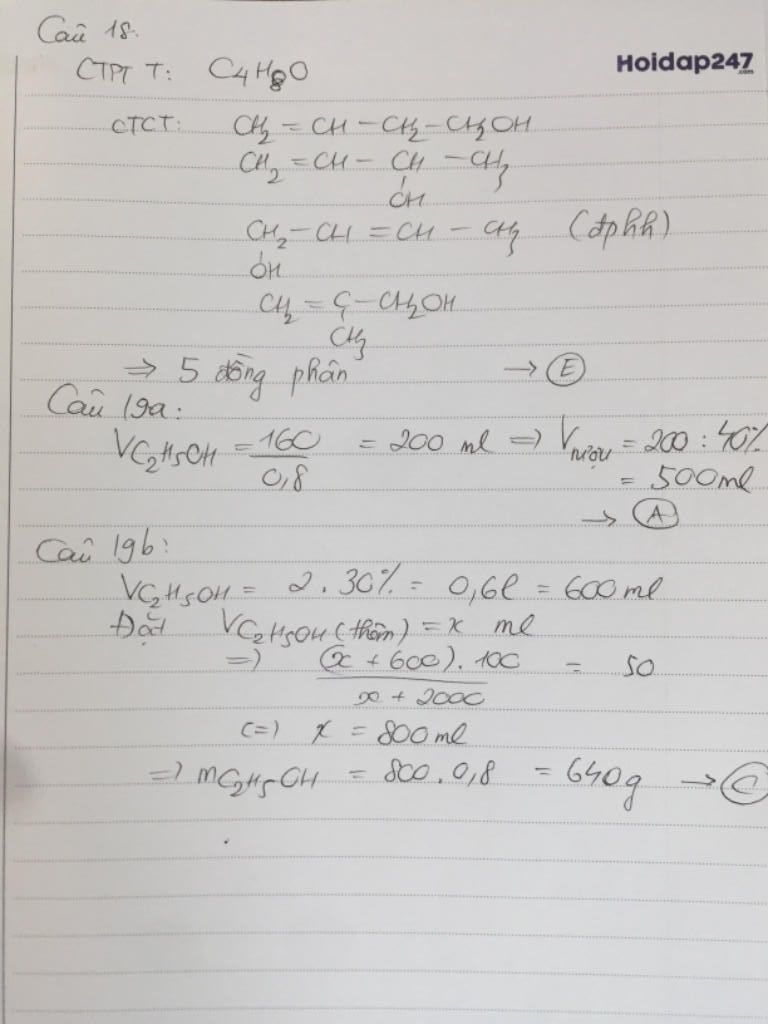 Câu 18.
CTPT T: C4H8O
Hoidap247.com
CTCT: CH2 = CH - CH2 - CH2OH
CH2 = CH - CH - CH3
OH
CH2 - CH = CH - CH3 (đphh)
OH
CH2 = C - CH2OH
CH3
=> 5 đồng phân → E
Câu 19a:
VC2H5OH = 160/0,8 = 200 ml => Vrượu = 200 : 40%
= 500ml
→ A
Câu 19b:
VC2H5OH = 2.30% = 0,6l = 600 ml
Đặt VC2H5OH (thêm) = x ml
=> (x + 600).100 / x + 2000 = 50
(=) x = 800ml
=> mC2H5OH = 800.0,8 = 640g → C